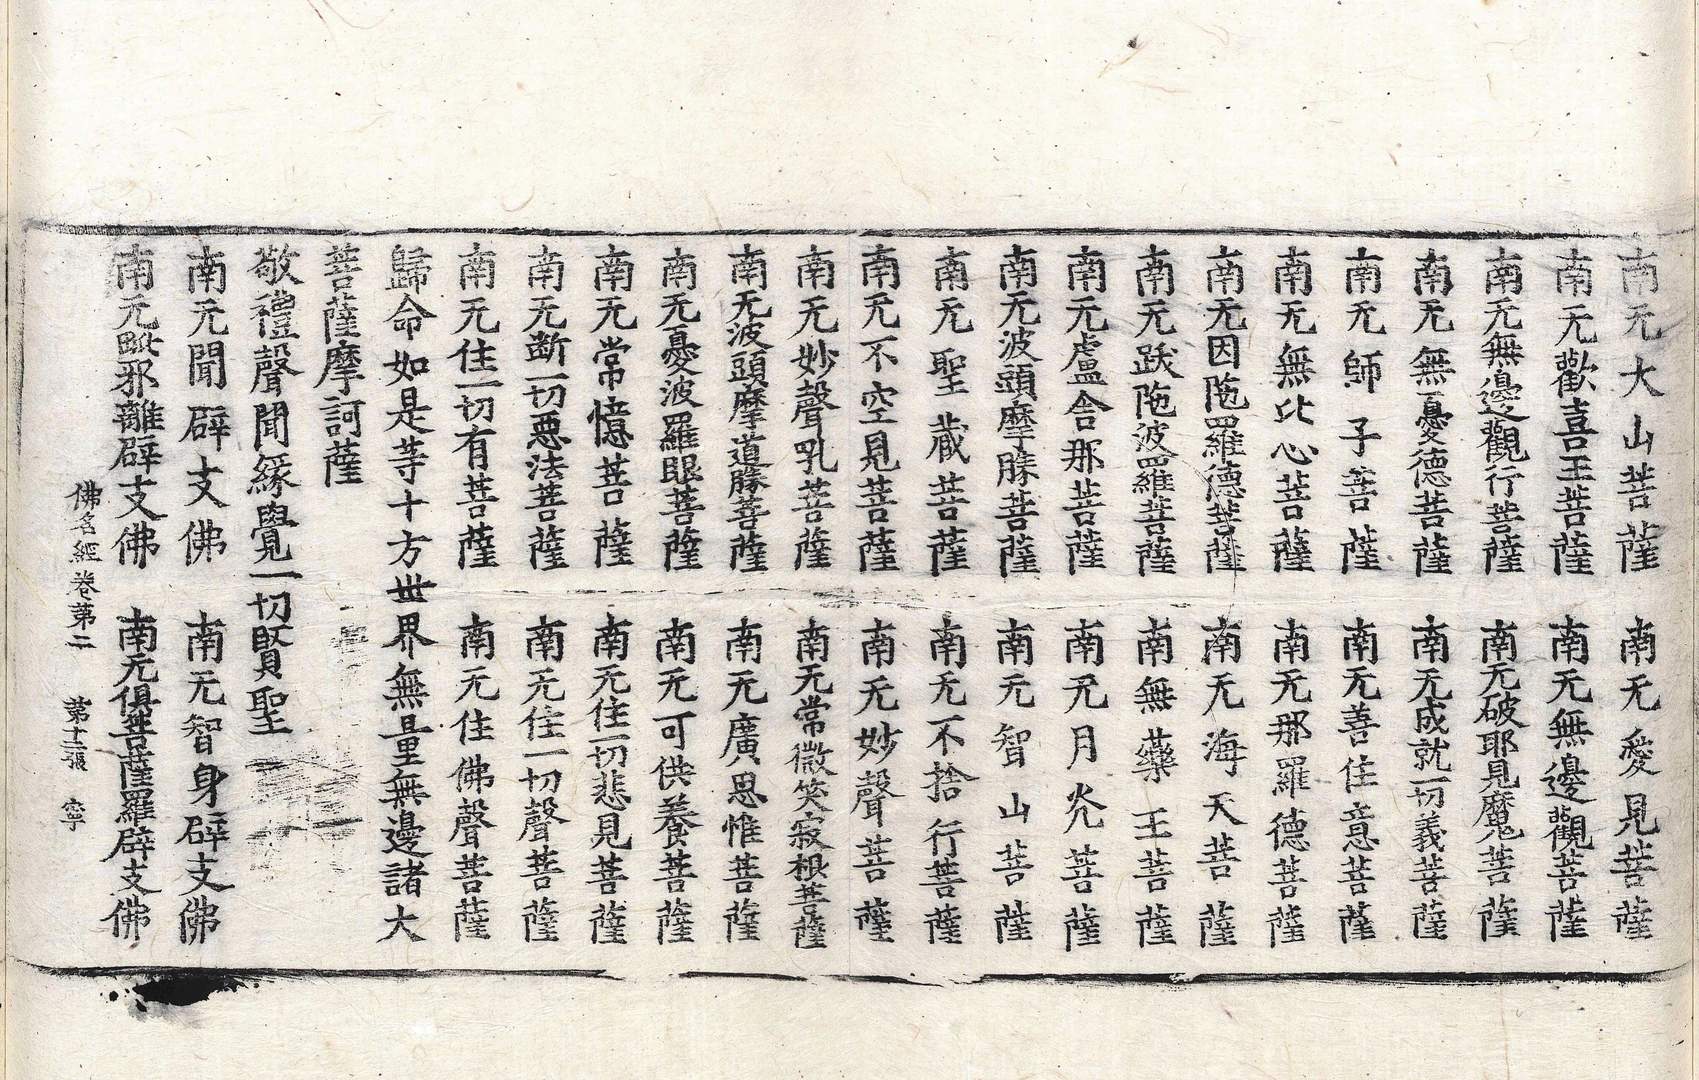 南无大山菩薩　南无愛見菩薩
南无歡喜王菩薩　南无無邊觀菩薩
南无無邊觀行菩薩　南无破耶見魔菩薩
南无無憂德菩薩　南无成就一切義菩薩
南无師子菩薩　南无善住意菩薩
南无無比心菩薩　南无那羅德菩薩
南无因陁羅德菩薩　南无海天菩薩
南无跋陁波羅菩薩　南無藥王菩薩
南无盧舍那菩薩　南无月光菩薩
南无波頭摩勝菩薩　南无智山菩薩
南无聖藏菩薩　南无不捨行菩薩
南无不空見菩薩　南无妙聲菩薩
南无妙聲乳菩薩　南无常微笑寂根菩薩
南无波頭摩道勝菩薩　南无廣思惟菩薩
南无憂波羅眼菩薩　南无可供養菩薩
南无常憶菩薩　南无住一切悲見菩薩
南无断一切悪法菩薩　南无住一切聲菩薩
南无住一切有菩薩　南无住佛聲菩薩
歸命如是等十方世界無量無邊諸大
菩薩摩訶薩
敬禮聲聞緣覺一切賢聖
南无聞辟支佛　南无智身辟支佛
南无毗邪離辟支佛　南无俱薩羅辟支佛
佛名經卷第二　第十二張　寧